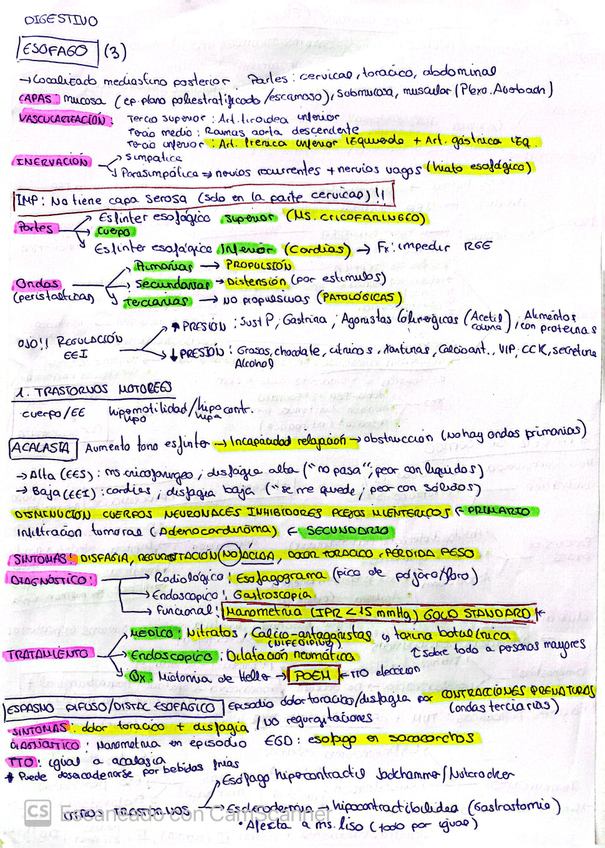 DIGESTIVO
ESOFAGO (3)
→ Localizado mediastino posterior. Partes: cervical, toracico, abdominal
CAPAS: mucosa (ep. plano poliestratificado/escamoso), submucosa, muscular (Plexo. Auerbach)
VASCULARIZACIÓN: Tercio superior: Art. tiroidea inferior
Tercio medio: Ramas aorta descendente
Tercio inferior: Art. frenica inferior izquierda + Art. gástrica izq.
INERVACIÓN → Simpatica
→ Parasimpática → nervios recurrentes + nervios vagos (hiato esofágico)
IMP: No tiene capa serosa (solo en la parte cervical) !!
Partes → Esfinter esofágico superior (MS. CRICOFARINGEO)
→ Cuerpo
→ Esfinter esofágico Inferior (Cardias) → Fx: impedir RGE
Ondas (peristalticas) → Primarias → PROPULSIÓN
→ Secundarias → Distensión (por estimulos)
→ Terciarias → No propulsivas (PATOLÓGICAS)
OJO!! REGULACIÓN EEI → ↑ PRESIÓN: Sust P, Gastrina, Agonistas Colinergicos (Acetil colina), Alimentos con proteinas
→ ↓ PRESIÓN: Grasas, chocolate, citricos, Xantinas, Calcioant., VIP, CCK, secretina
Alcohol
1. TRASTORNOS MOTORES
cuerpo/EE
ACALASIA Aumento tono esfinter → Incapacidad relajación → obstrucción (No hay ondas primarias)
→ Alta (EES): ms cricofaringeo; disfagia alta ("no pasa"; peor con liquidos)
→ Baja (EEI): cardias; disfagia baja ("se me quede; peor con sólidos)
DISMINUCIÓN CUERPOS NEURONALES INHIBIDORES PLEXOS MIENTERICOS ← PRIMARIO
Infiltración tumoral (Adenocarcinoma) ← SECUNDARIO
SINTOMAS: DISFAGIA, REGURGITACIÓN NO ÁCIDA, DOLOR TORACICO, PÉRDIDA PESO
DIAGNÓSTICO: → Radiológico: Esofagograma (pico de pájaro/)
→ Endoscopico: Gastroscopia
→ Funcional: Manometria (IPR < 15 mmHg) GOLD STANDARD ←
TRATAMIENTO → MEDICO: Nitratos, Calcio-antagonistas (NIFEDIPINO) y toxina botulinica
→ Endoscopico: Dilatación neumática sobre todo a personas mayores
→ Qx: Miotomia de Heller → POEM ← TTO eleccion
ESPASMO DIFUSO/DISTAL ESOFÁGICO Episodio dolor toracico/disfagia por CONTRACCIONES PREMATURAS (ondas terciarias)
SINTOMAS: dolor toracico + disfagia / NO regurgitaciones
DIAGNOSTICO: Manometria en episodio EGD: esofago en sacacorchos
TTO: igual a acalasia
* Puede desencadenarse por bebidas frias
OTROS TRASTORNOS → Esofago hipercontractil Jackhammer/Nutcracker
→ Esclerodermia → hipocontractibilidea (Gastrostomia)
• Afecta a ms. liso (todo por igual)
CS Escaneado con CamScanner